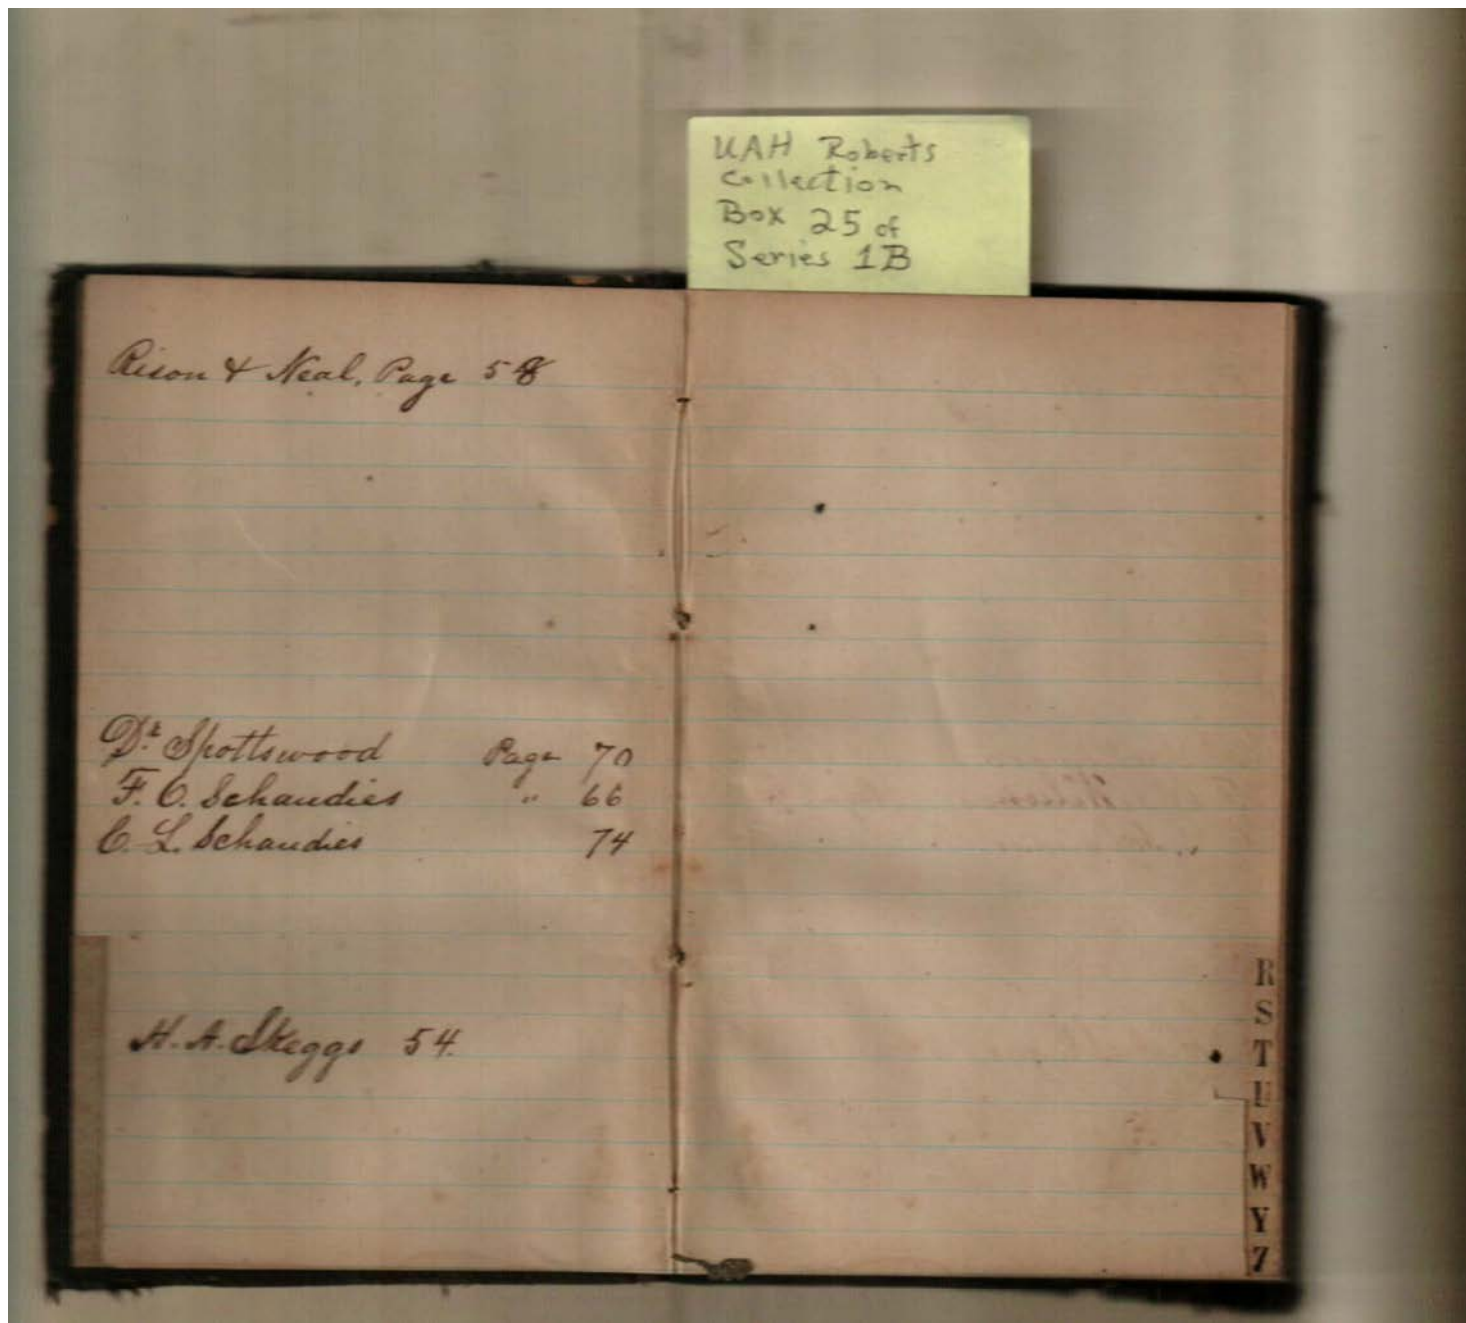 UAH Roberts
Collection
Box 25 of
Series 1B
Rison & Neal, Page 58
Dr Spottswood Page 70
F. O. Schaudies " 66
C. L. Schaudies 74
H. A. Skeggs 54.
R
S
T
U
V
W
Y
Z